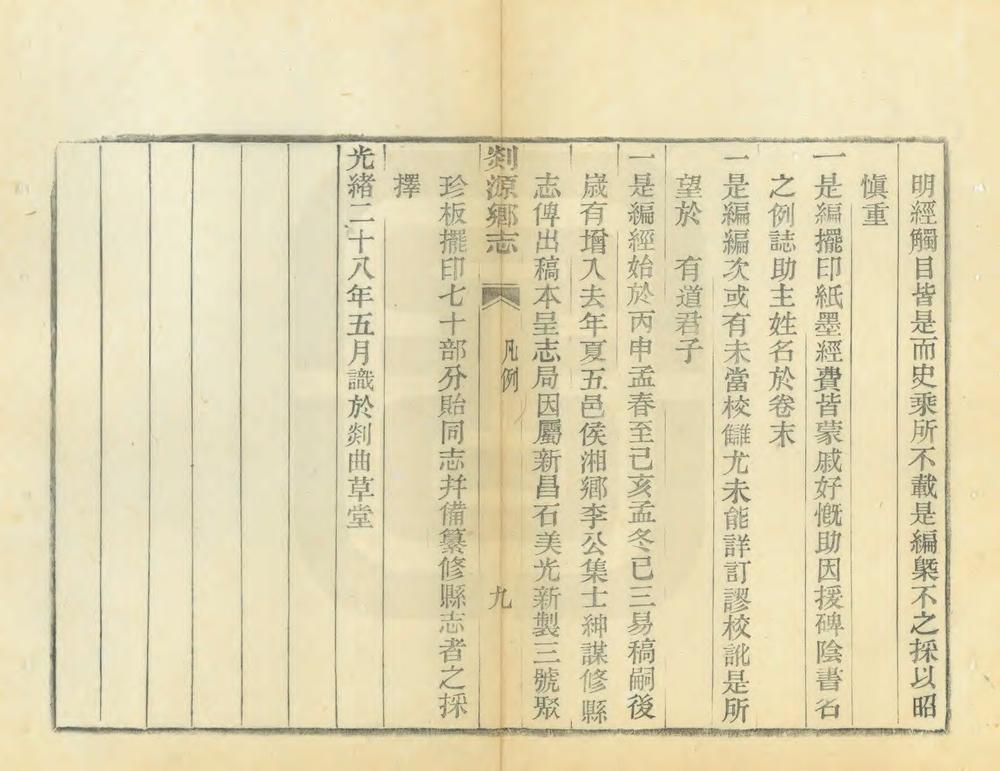 明經觸目皆是而史乘所不載是編槩不之採以昭
愼重
一是編擺印紙墨經費皆蒙戚好慨助因援碑陰書名
之例誌助主姓名於卷末
一是編編次或有未當校讎尤未能詳訂謬校訛是所
望於 有道君子
一是編經始於丙申孟春至己亥孟冬已三易稿嗣後
歲有增入去年夏五邑侯湘鄉李公集士紳謀修縣
志俾出稿本呈志局因屬新昌石美光新製三號聚
剡源鄉志 凡例 九
珍板擺印七十部分貽同志幷備纂修縣志者之採
擇
光緒二十八年五月識於剡曲草堂